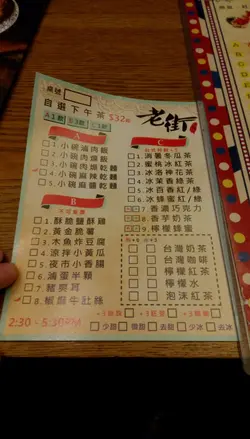 座號
自選下午茶 $32
老街
A1款 B3款 C1款
A
□ 1. 小碗滷肉飯
□ 2. 小碗肉燥飯
□ 3. 小碗肉燥乾麵
□ 4. 小碗麻辣乾麵
□ 5. 小碗麻醬乾麵
B
□ 1. 酥脆鹽酥雞
□ 2. 黃金脆薯
□ 3. 木魚炸豆腐
□ 4. 涼拌小黃瓜
□ 5. 夜市小香腸
□ 6. 滷蛋半顆
□ 7. 豬
□ 8. 椒麻牛肚絲
2:30 - 5:30PM
C
□ 1. 消暑冬瓜茶
□ 2. 蜜桃冰紅茶
□ 3. 冰洛神花茶
□ 4. 冰茉香綠茶
□ 5. 冰百香紅/綠
□ 6. 冰蜂蜜紅/綠
□ 7. 香濃巧克力
□ 8. 香芋奶茶
□ 9. 檸檬蜂蜜
台灣奶茶
台灣咖啡
檸檬紅茶
檸檬水
泡沫紅茶
□ 少甜 □ 微甜 □ 去甜 □ 少冰 □ 去冰